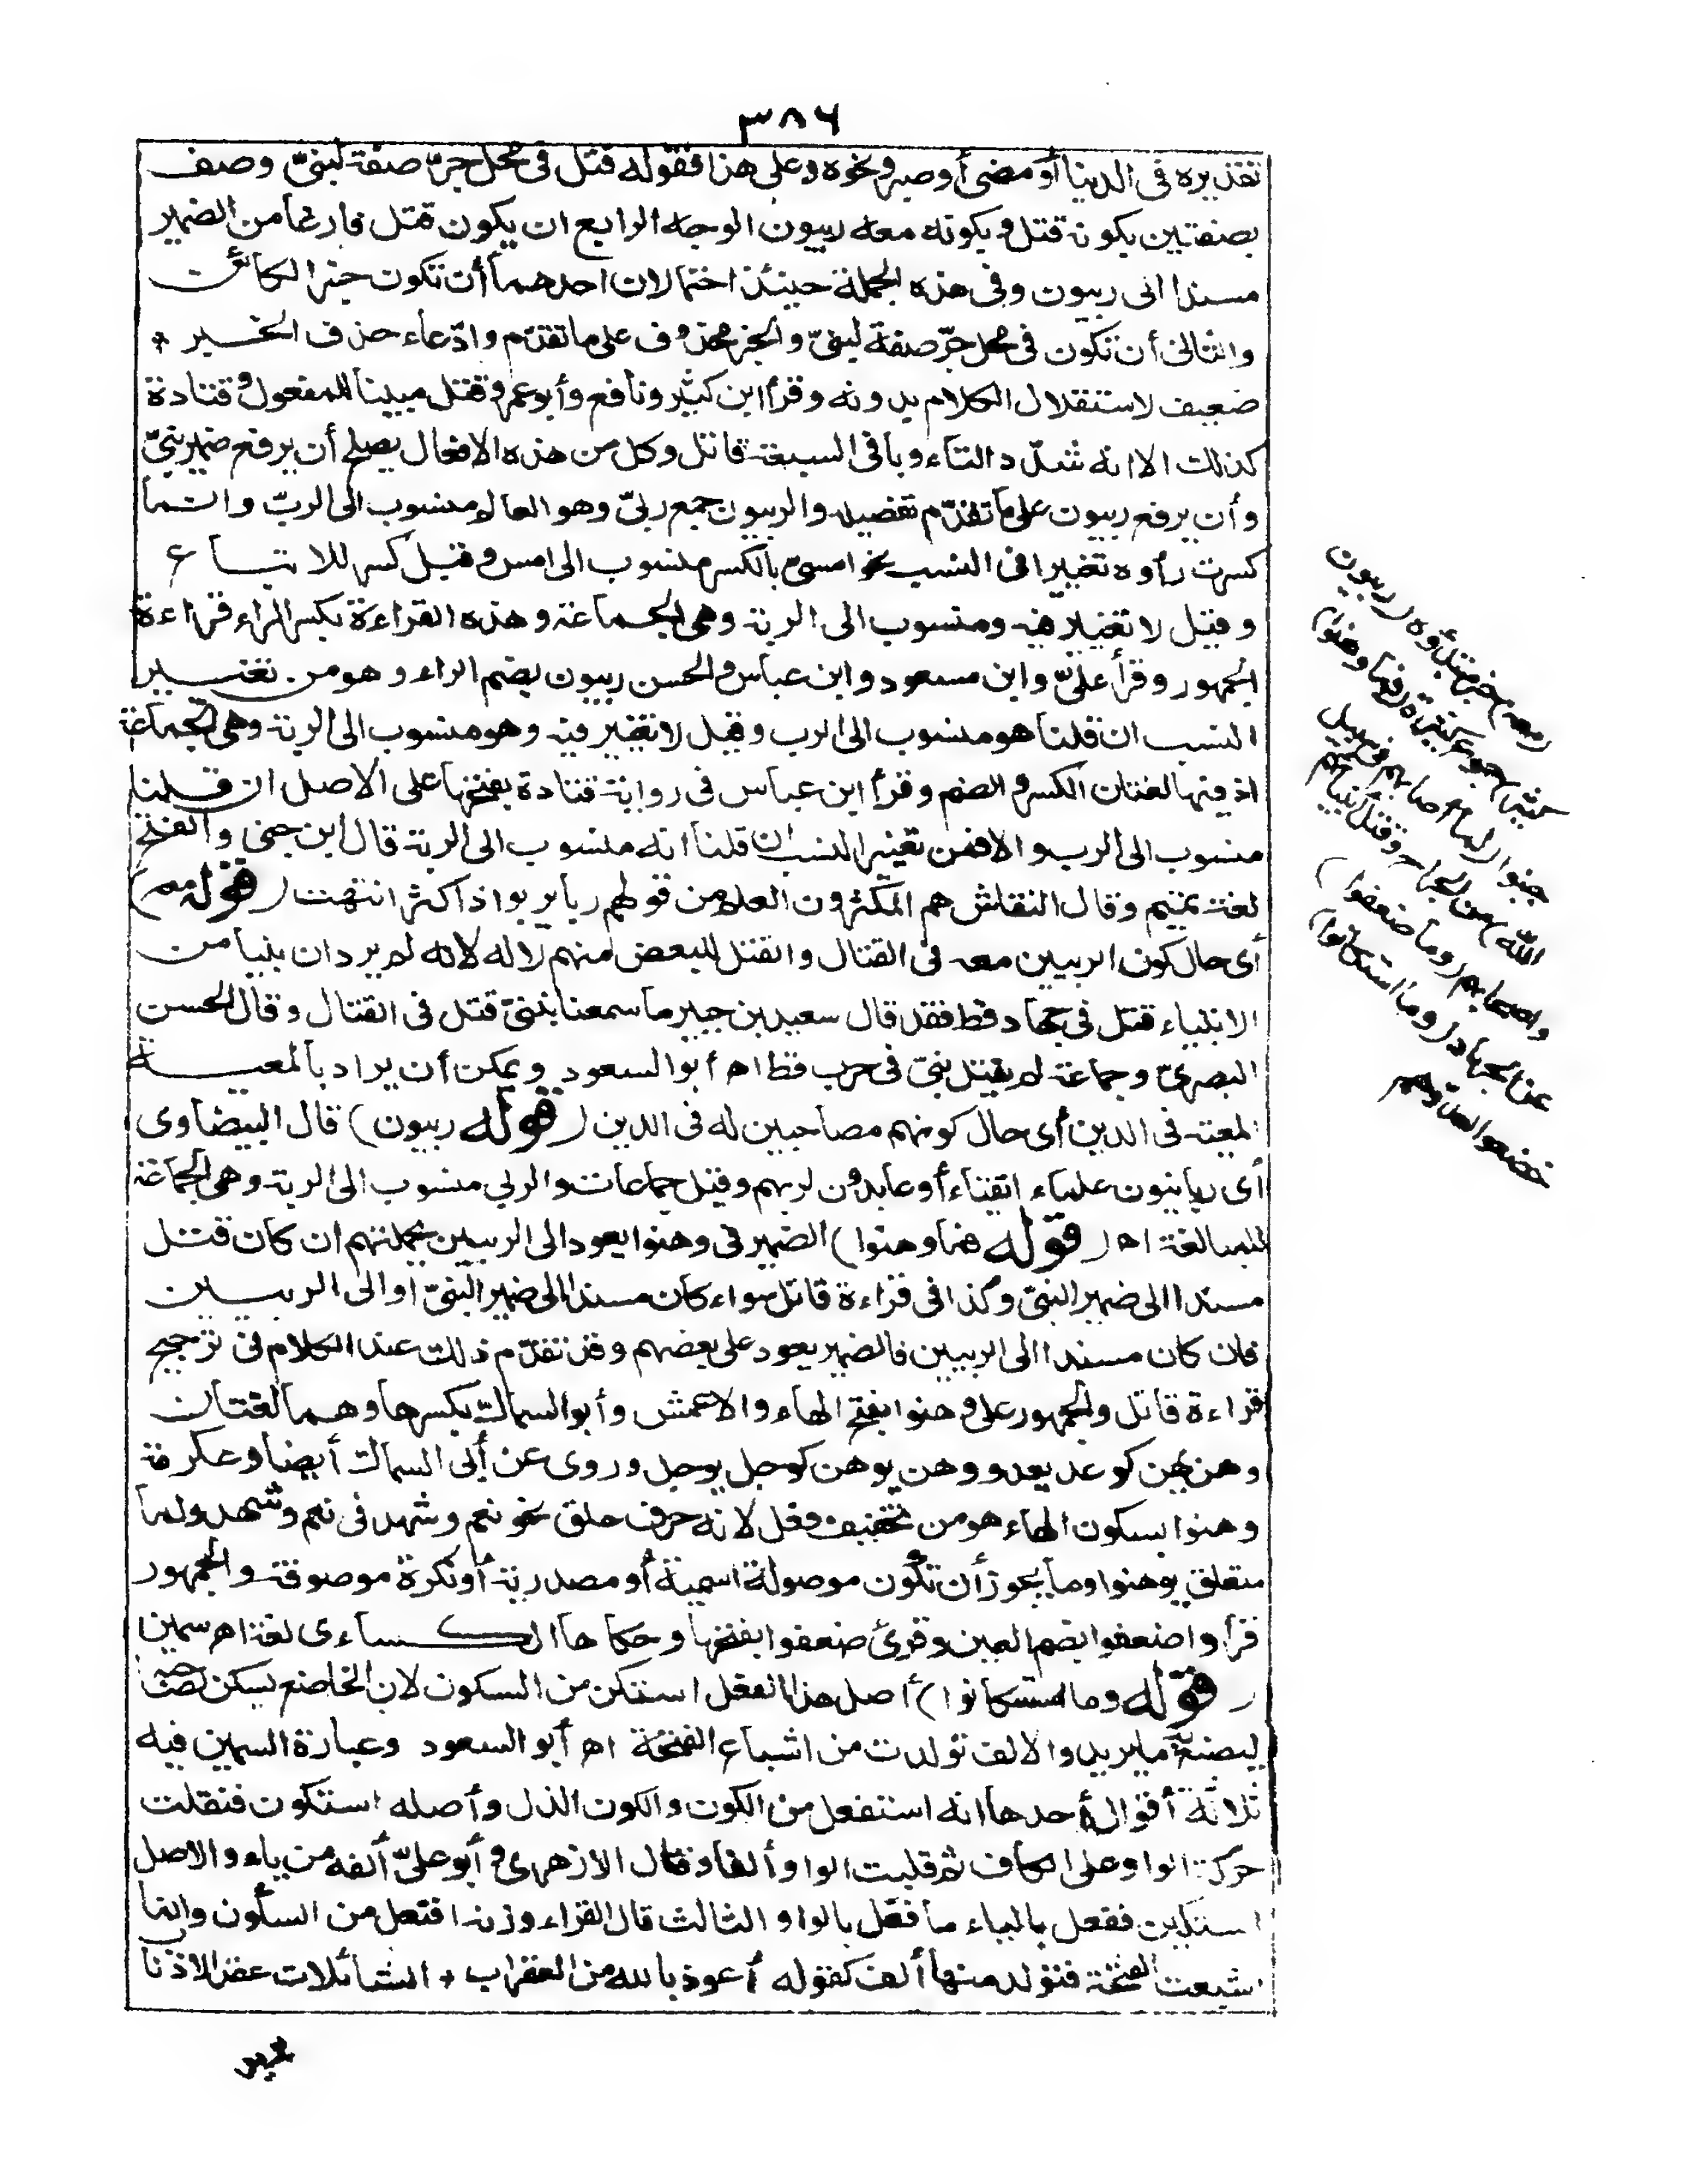 ٣٨٦
تقديره فى الدنيا أو مضى أو صبر ونحوه وعلى هذا فقوله قتل فى محل جرّ صفة لنبىّ وصف
بصفتين بكونه قتل وبكونه معه ربيون الوجه الرابع ان يكون قتل فارغا من الضمير
مسندا الى ربيون وفى هذه الجملة حينئذ احتمالان احدهما أن تكون خبرا لكائن
والثانى أن تكون فى محل جرّ صفة لنبىّ والخبر محذوف على ما تقدّم وادّعاء حذف الخبر
ضعيف لاستقلال الكلام بدونه وقرأ ابن كثير ونافع وأبو عمرو قتل مبنيا للمفعول وقتادة
كذلك الا انه شدّد التاء وباقى السبعة قاتل وكل من هذه الافعال يصلح أن يرفع ضمير نبىّ
وأن يرفع ربيون على ما تقدّم تفصيله والربيون جمع ربىّ وهو العالم منسوب الى الربّ وانما
كسرت راؤه تغييرا فى النسب نحو امسىّ بالكسر منسوب الى امس وقيل كسر للاتباع
وقيل لا تغيير فيه ومنسوب الى الربة وهى الجماعة وهذه القراءة بكسر الراء قراءة
الجمهور وقرأ علىّ وابن مسعود وابن عباس والحسن ربيون بضم الراء وهو من تغيير
النسب ان قلنا هو منسوب الى الرب وقيل لا تغيير فيه وهو منسوب الى الربة وهى الجماعة
اذ فيها لغتان الكسر والضم وقرأ ابن عباس فى رواية قتادة بفتحها على الاصل ان قلنا
منسوب الى الرب والا فمن تغيير النسب ان قلنا انه منسوب الى الربة قال ابن جنى والفتح
لغة تميم وقال النقاش هم المكثرون العلم من قولهم ربا يربو اذا كثر انتهت (قوله معه)
أى حال كون الربيين معه فى القتال والقتل للبعض منهم لا له لانه لم يرد ان نبيا من
الانبياء قتل فى جهاد قط فقد قال سعيد بن جبير ما سمعنا بنبىّ قتل فى القتال وقال الحسن
البصرىّ وجماعة لم يقتل نبىّ فى حرب قط اه أبو السعود ويمكن أن يراد بالمعية
المعية فى الدين أى حال كونهم مصاحبين له فى الدين (قوله ربيون) قال البيضاوى
أى ربانيون علماء اتقياء أو عابدون لربهم وقيل جماعات والربى منسوب الى الربة وهى الجماعة
للمبالغة اه (قوله فما وهنوا) الضمير فى وهنوا يعود الى الربيين بجملتهم ان كان قتل
مسندا الى ضمير النبىّ وكذا فى قراءة قاتل سواء كان مسندا الى ضمير النبىّ او الى الربيين
فان كان مسندا الى الربيين فالضمير يعود على بعضهم وقد تقدّم ذلك عند الكلام فى ترجيح
قراءة قاتل والجمهور على وهنوا بفتح الهاء والاعمش وأبو السمال بكسرها وهما لغتان
وهن يهن كوعد يعد ووهن يوهن كوجل يوجل وروى عن أبى السمال أيضا وعكرمة
وهنوا بسكون الهاء هو من تخفيف فعل لانه حرف حلق نحو نعم وشهد فى نعم وشهد ولما
متعلق بوهنوا وما يجوز أن تكون موصولة اسمية أو مصدرية أو نكرة موصوفة والجمهور
قرأوا ضعفوا بضم العين وقرئ ضعفوا بفتحها وحكاها الكساءى لغة اه سمين
(قوله وما استكانوا) أصل هذا الفعل استكن من السكون لان الخاضع يسكن لصاحبه
ليصنع به ما يريد والالف تولدت من اشباع الفتحة اه أبو السعود وعبارة السمين فيه
ثلاثة أقوال أحدها انه استفعل من الكون والكون الذل وأصله استكون فنقلت
حركة الواو على الكاف ثم قلبت الواو ألفا وقال الازهرى وأبو علىّ ألفه من ياء والاصل
استكين ففعل بالياء ما فعل بالواو الثالث قال الفراء وزنه افتعل من السكون وانما
اشبعت الفتحة فتولد منها ألف كقوله أعوذ بالله من العقراب * الشائلات عقد الاذناب
(معه) خبر مبتدؤه (ربيون
كثير) جموع كثيرة (فما وهنوا)
جبنوا (لما أصابهم فى سبيل
الله) من الجراح وقتل أنبيائهم
واصحابهم (وما ضعفوا)
عن الجهاد (وما استكانوا)
خضعوا لعدوّهم